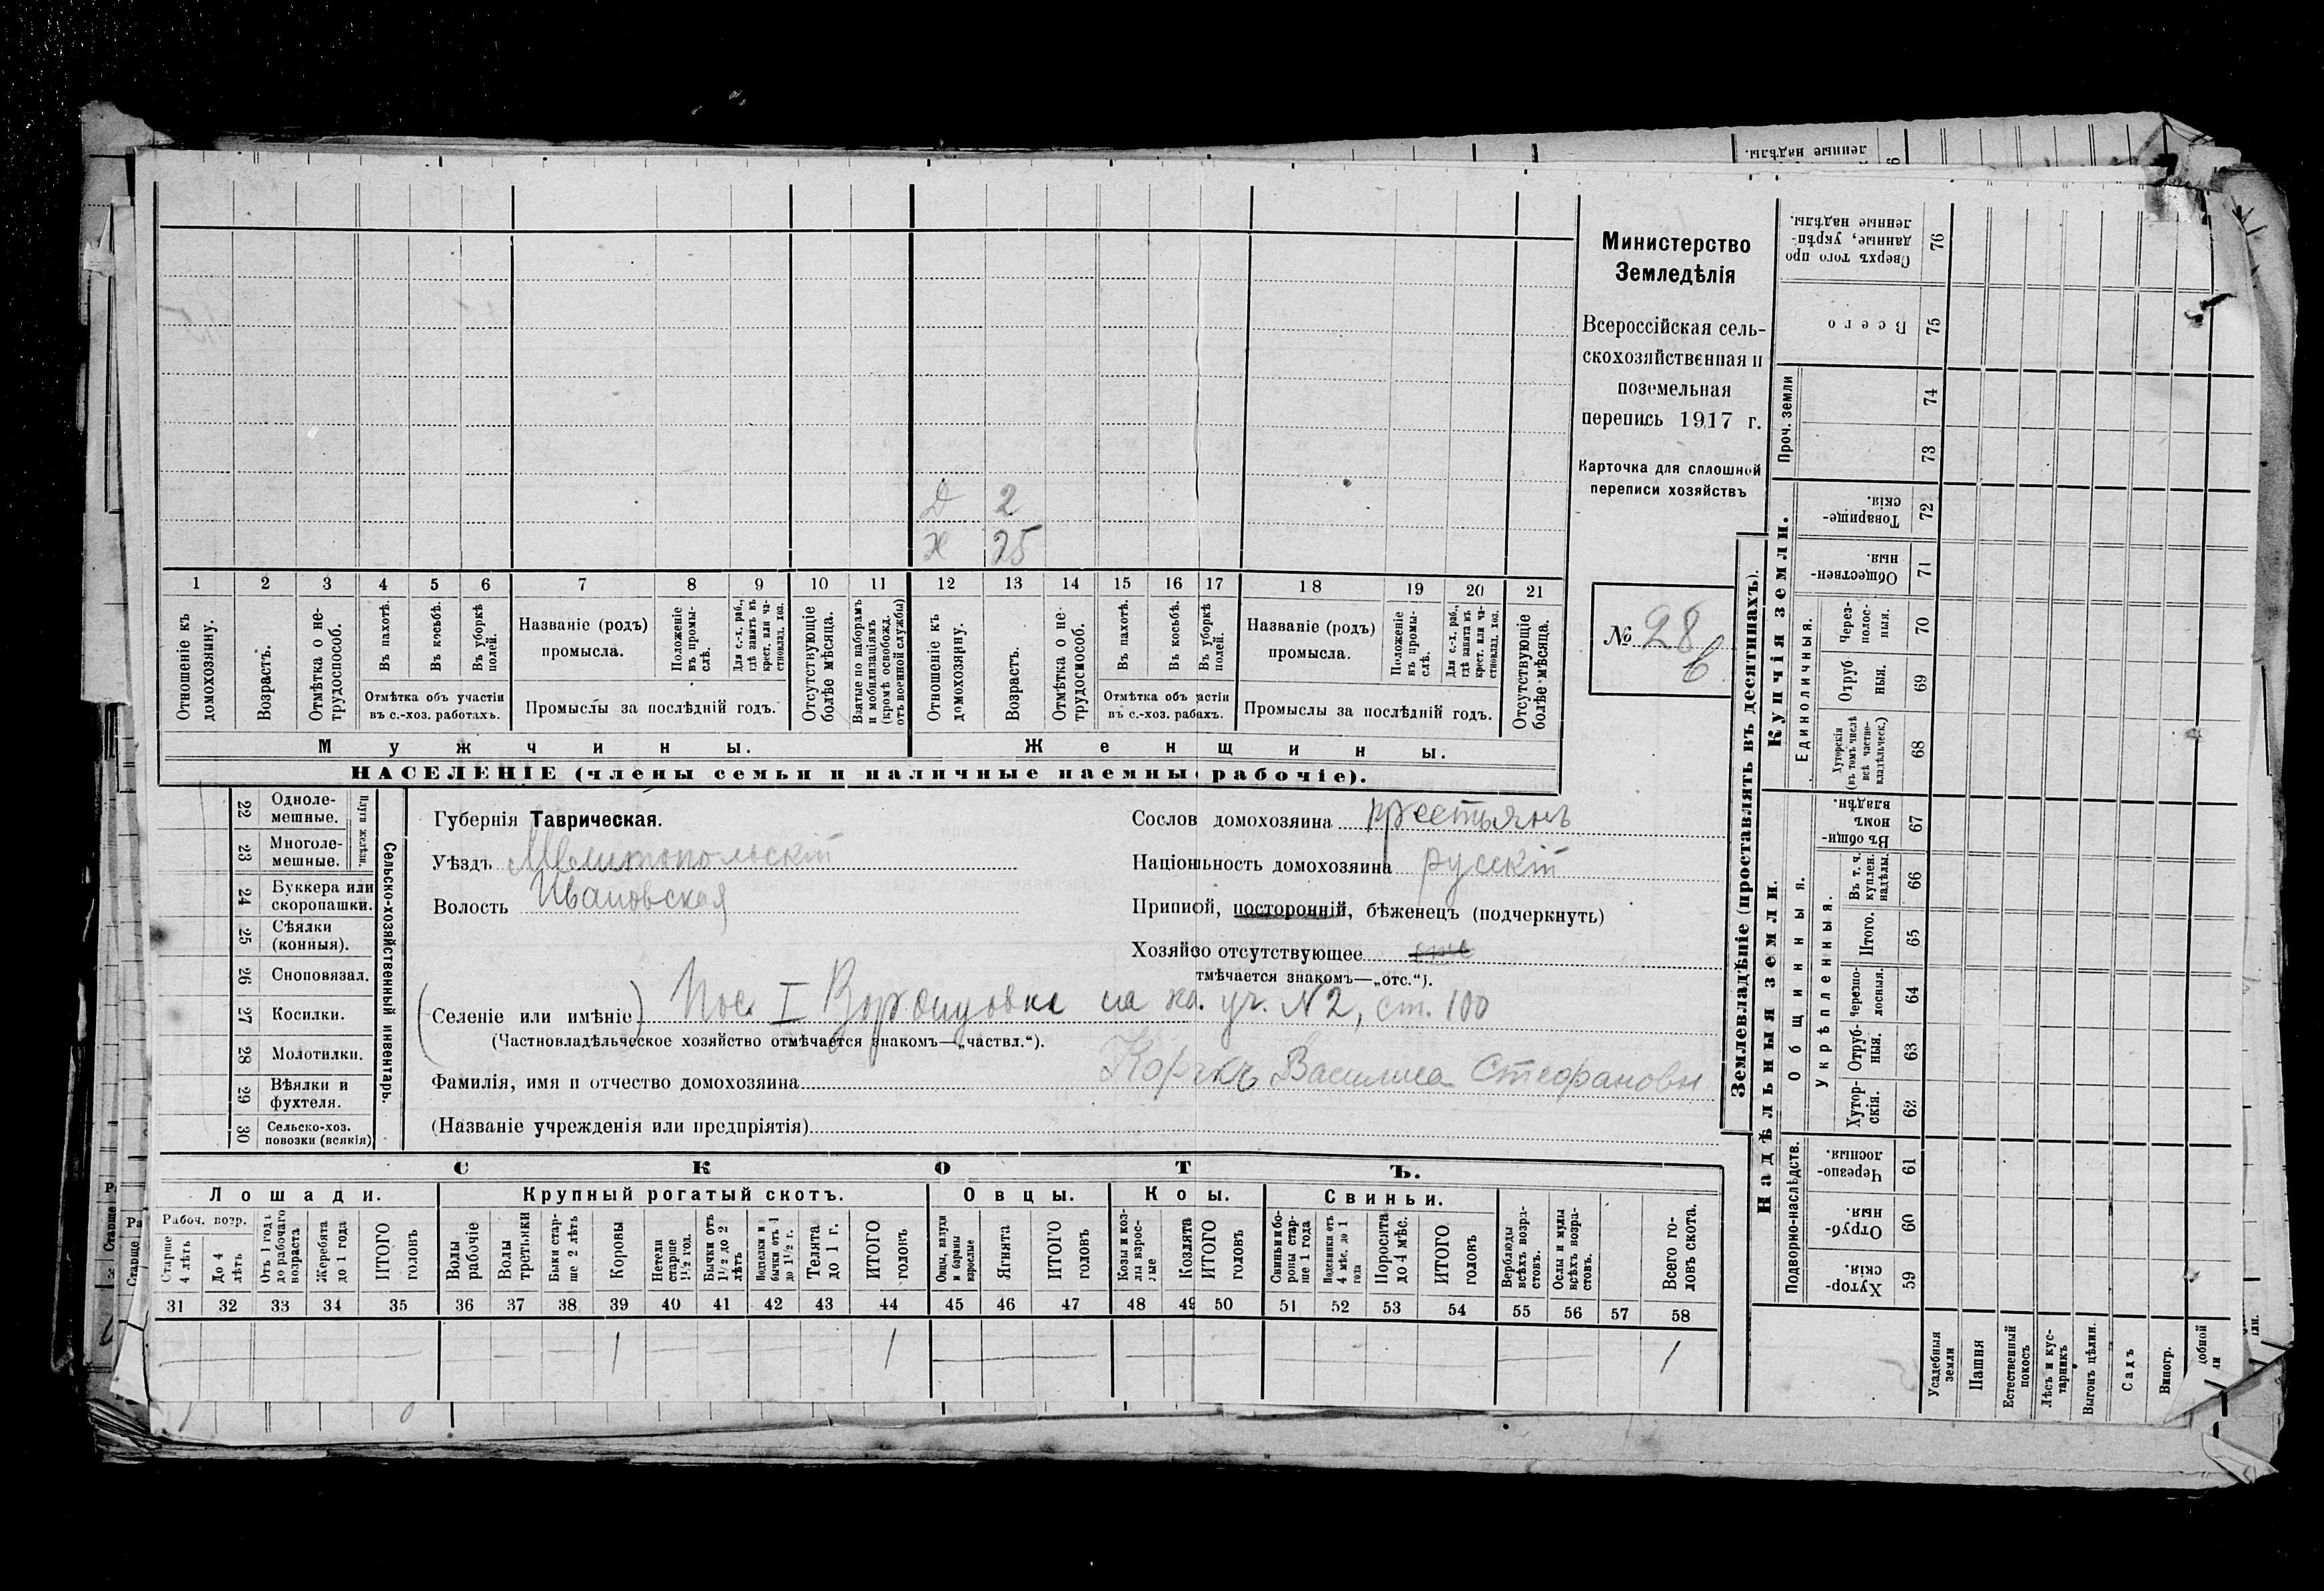 ленные надѣлы.
Д 2
Ж 25
1 2 3 4 5 6 7 8 9 10 11 12 13 14 15 16 17 18 19 20 21
Отношеніе къ домохозяину.
Возрастъ.
Отмѣтка о не-трудоспособ.
Въ пахотѣ.
Въ косьбѣ.
Въ уборкѣ полей.
Отмѣтка объ участіи
въ с.-хоз. работахъ.
Названіе (родъ)
промысла.
Положеніе въ промы-слѣ.
Для с.-х. раб., гдѣ занятъ въ крест. или ча-стновлад. хоз.
Промыслы за послѣдній годъ.
Отсутствующіе болѣе мѣсяца.
Взятые по наборамъ и мобилизаціямъ (кромѣ освобожд. отъ военной службы)
Отношеніе къ домохозяину.
Возрастъ.
Отмѣтка о не-трудоспособ.
Въ пахотѣ.
Въ косьбѣ.
Въ уборкѣ полей.
Отмѣтка объ астіи
въ с.-хоз. рабахъ.
Названіе (родъ)
промысла.
Положеніе въ промы-слѣ.
Для с.-х. раб., гдѣ занята въ крест. или ча-стновлад. хоз.
Промыслы за послѣдній годъ.
Отсутствующіе болѣе мѣсяца.
Мужчины. Женщины.
НАСЕЛЕНІЕ (члены семьи и наличные наемны рабочіе).
Министерство
Земледѣлія
Всероссійская сель-
скохозяйственная и
поземельная
перепись 1917 г.
Карточка для сплошной
переписи хозяйствъ
№ 28
22 Одноле-мешные.
23 Многоле-мешные.
Плуги желѣзн.
24 Буккера или скоропашки.
25 Сѣялки (конныя).
26 Сноповязал.
27 Косилки.
28 Молотилки.
29 Вѣялки и фухтеля.
30 Сельско-хоз. повозки (всякія)
Сельско-хозяйственный инвентарь.
Губернія Таврическая.
Уѣздъ Мелитопольскій
Волость Ивановская
Сослов домохозяина крестьянъ
Націоньность домохозяина русскій
Приписй, посторонній, бѣженецъ (подчеркнуть)
Хозяйво отсутствующее
тмѣчается знакомъ—„отс.“).
(Селеніе или имѣніе) Пос. I Воронцовка на ка. уч. N2, ст. 100
(Частновладѣльческое хозяйство отмѣчается знакомъ—„частвл.“).
Фамилія, имя и отчество домохозяина Василиса Стефановы
(Названіе учрежденія или предпріятія)
СКОТЪ.
Лошади. Крупный рогатый скотъ. Овцы. Козы. Свиньи.
Рабоч. возр.
Старше 4 лѣтъ
До 4 лѣтъ
Отъ 1 года до рабочаго возраста
Жеребята до 1 года
ИТОГО головъ
Волы рабочіе
Волы третьяки
Быки стар-ше 2 лѣтъ
Коровы
Нетели старше 1½ год.
Бычки отъ 1½ до 2 лѣтъ
Подтелки и бычки отъ 1 до 1½ г.
Телята до 1 г.
ИТОГО головъ
Овцы, валухи и бараны взрослые
Ягнята
ИТОГО головъ
Козы и коз-лы взрос-лые
Козлята
ИТОГО головъ
Свиньи и бо-ровы стар-ше 1 года
Подсвинки отъ 4 мѣс. до 1 года
Поросята до 4 мѣс.
ИТОГО головъ
Верблюды всѣхъ возра-стовъ.
Ослы и мулы всѣхъ возра-стовъ.
Всего го-ловъ скота.
31 32 33 34 35 36 37 38 39 40 41 42 43 44 45 46 47 48 49 50 51 52 53 54 55 56 57 58
1 1 1
Землевладѣніе (проставлять въ десятинахъ).
Надѣльныя земли. Купчія земли.
Проч. земли
Подворно-наслѣдств.
Общинныя.
Укрѣпленныя.
Единоличныя.
Сверхъ того про данные, укрѣп-ленные надѣлы. 76
Всего 75
74
73
Товарище-скія. 72
Обществен-ныя. 71
Через-полос-ныя. 70
Отруб ныя. 69
Хуторскія (въ томъ числѣ всѣ частно-владѣльческ.) 68
Въ общи-номъ владѣн. 67
Въ т. ч. куплен. надѣлы. 66
Итого. 65
Черезпо-лосныя. 64
Отруб-ныя. 63
Хутор-скія. 62
Черезпо-лосныя. 61
Отруб-ныя. 60
Хутор-скія. 59
Усадебныя земли
Пашня
Естественный покосъ
Лѣсъ и кус-тарникъ
Выгонъ цѣлин.
Садъ
Виногр.